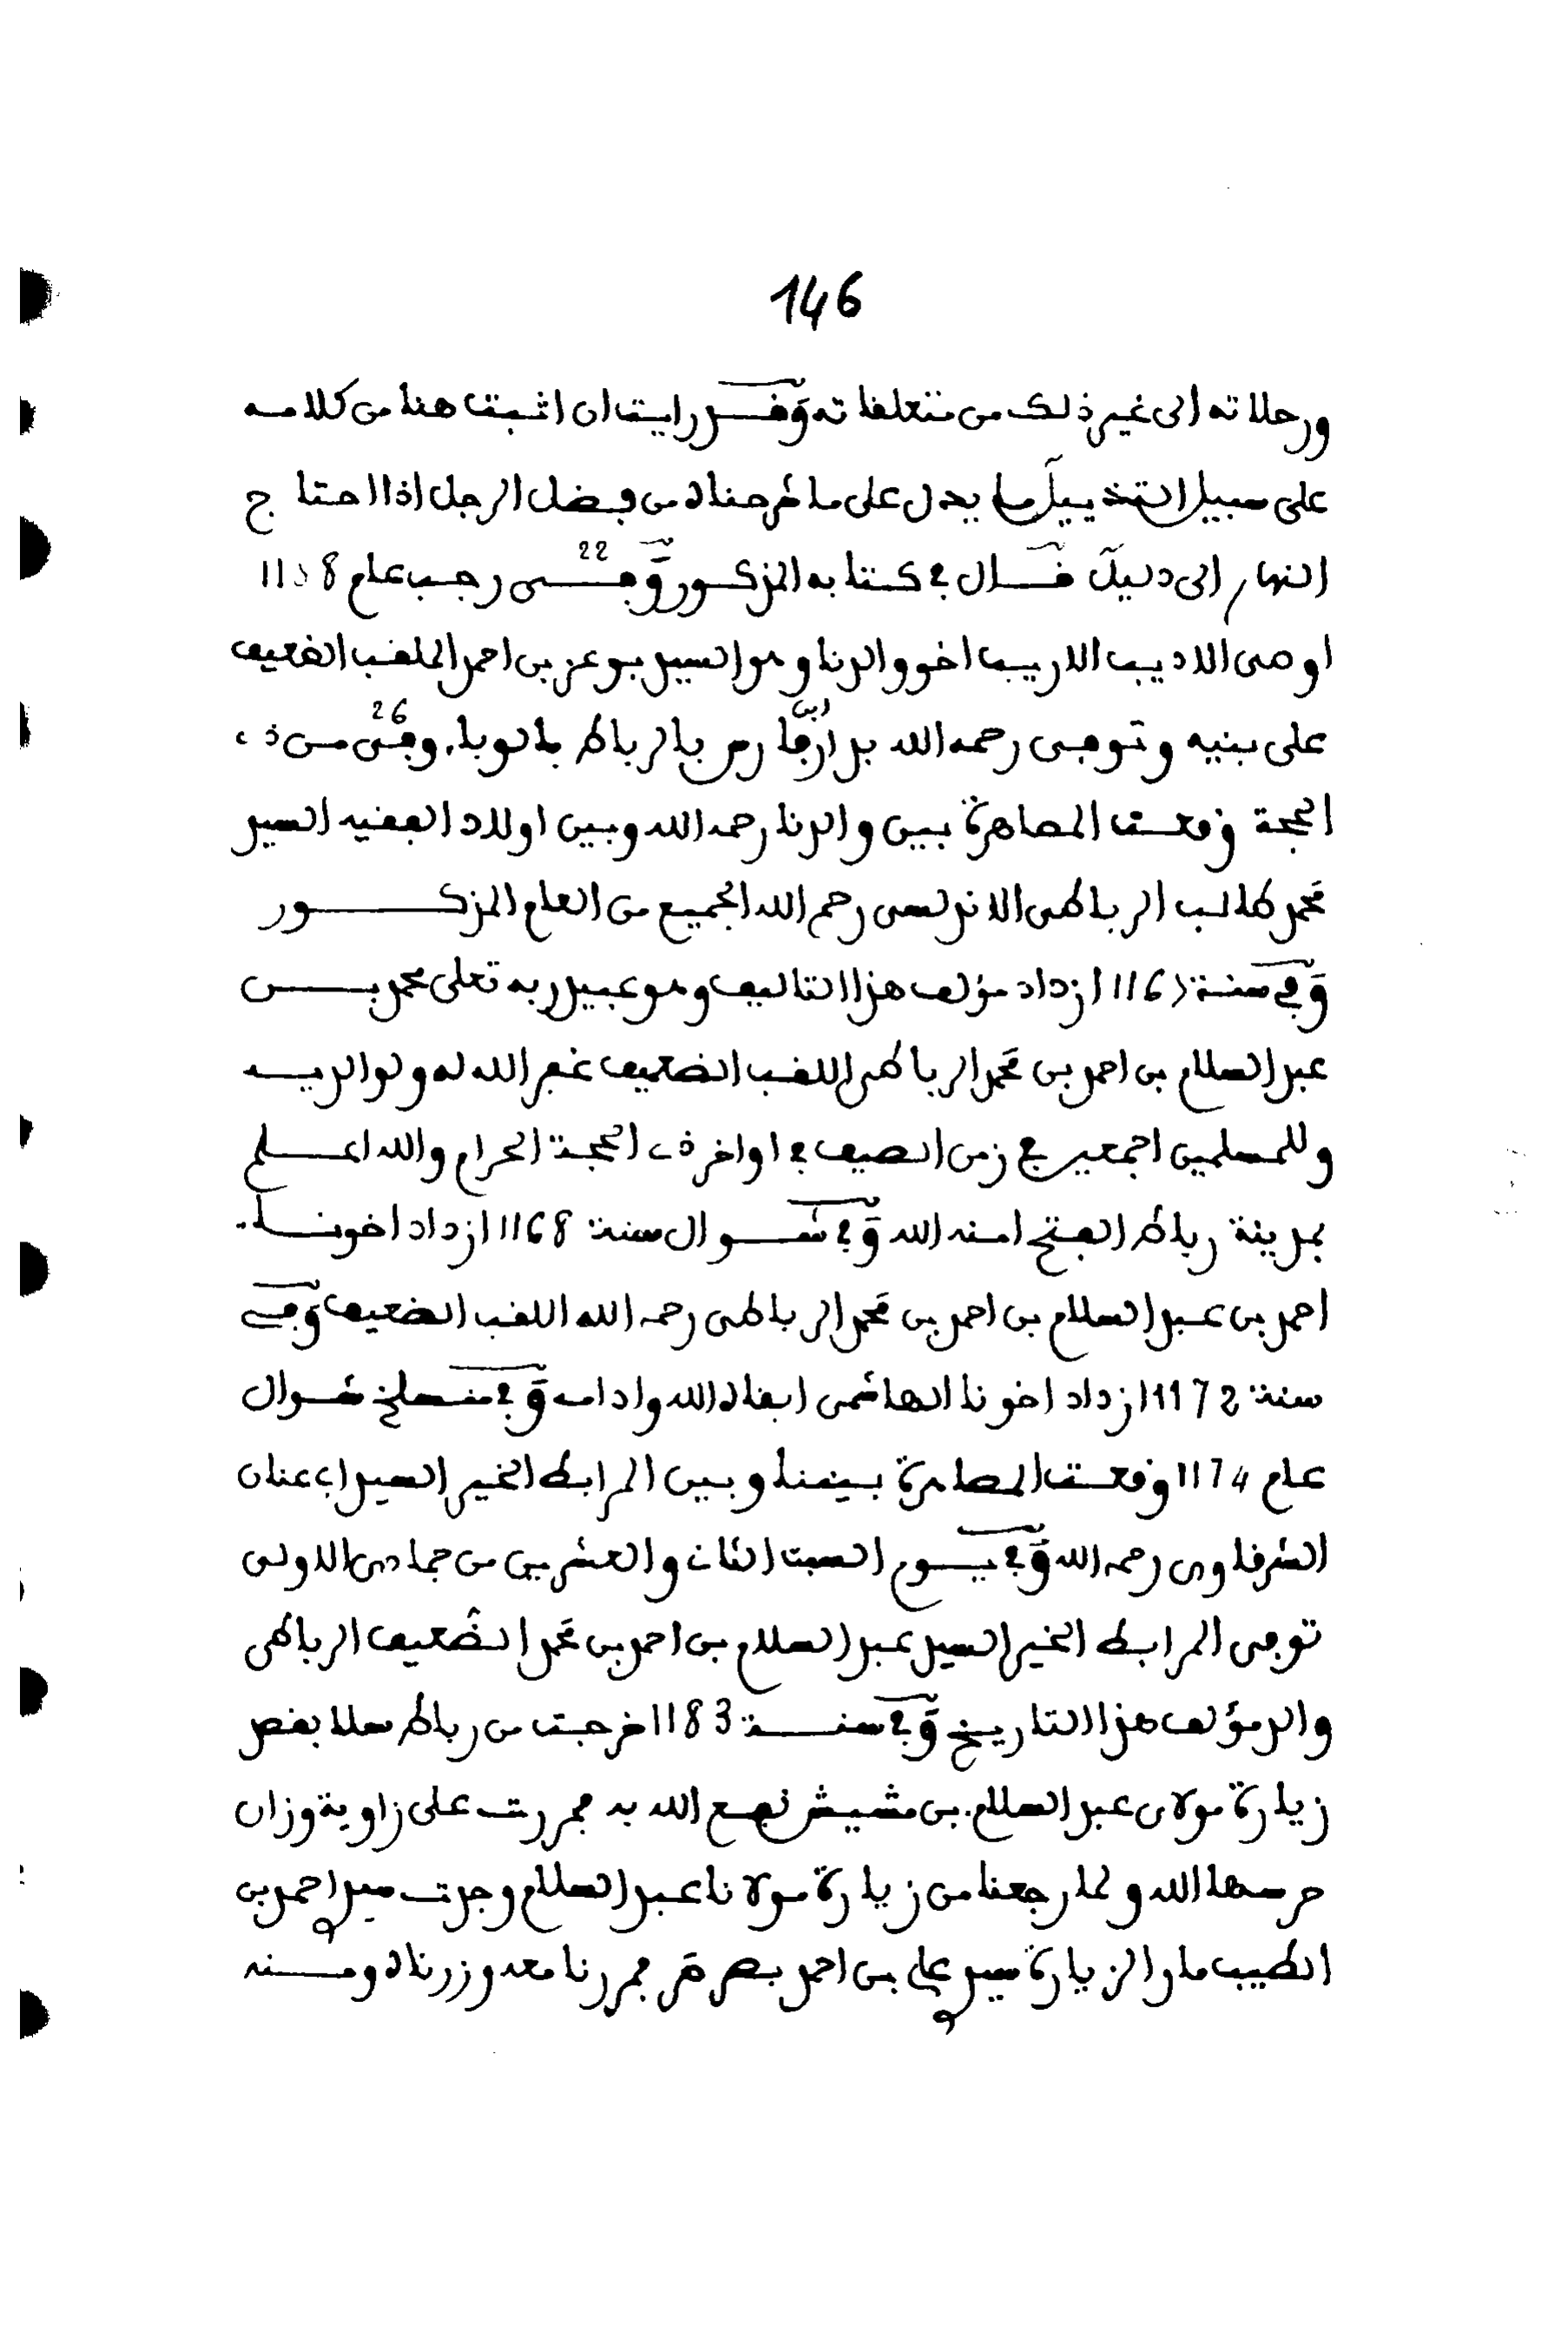 146
ورحلاته إلى غير ذلك من متعلقاته وقد رايت ان اثبت هنا من كلامه
على سبيل التذييل ما يدل على ما شرحناه من فضل الرجل اذا احتاج
النهار إلى دليل قال في كتابه المذكور وفي 22 رجب عام 1158
اوصى الاديب الاريب اخو والدنا وهو السيد بوعز بن احمد الملقب الضعيف
على بنيه وتوفى رحمه الله بدار ابن رحمه بالرباط بالوباء وفي 26 من ذي
الحجة وقعت المصاهرة بين والدنا رحمه الله وبين اولاد الفقيه السيد
محمد طالب الرباطى الاندلسى رحم الله الجميع من العام المذكور
وفي سنة 1165 ازداد مؤلف هذا التاليف وهو عبيد ربه تعلى محمد بن
عبد السلام بن احمد بن محمد الرباطى اللقب الضعيف غفر الله له ولوالديه
وللمسلمين اجمعين في زمن الصيف في اواخر ذي الحجة الحرام والله اعلم
بمدينة رباط الفتح امنه الله وفي شوال سنة 1168 ازداد اخونا
احمد بن عبد السلام بن احمد بن محمد الرباطى رحمه الله اللقب الضعيف وفي
سنة 1172 ازداد اخونا الهاشمى ابقاه الله وادامه وفي منسلخ شوال
عام 1174 وقعت المصاهرة بيننا وبين المرابط الخير السيد ابي عنان
الشرقاوى رحمه الله وفي يوم السبت الثاني والعشرين من جمادى الاولى
توفى المرابط الخير السيد عبد السلام بن احمد بن محمد الضعيف الرباطى
والد مؤلف هذا التاريخ وفي سنة 1183 خرجت من رباط سلا بقصد
زيارة مولاى عبد السلام بن مشيش نفع الله به فمررت على زاوية وزان
حرسها الله ولما رجعنا من زيارة مولانا عبد السلام وجدت سيدي احمد بن
الطيب مارا لزيارة سيدي علي بن احمد بصرصر فمررنا معه وزرناه ومنه